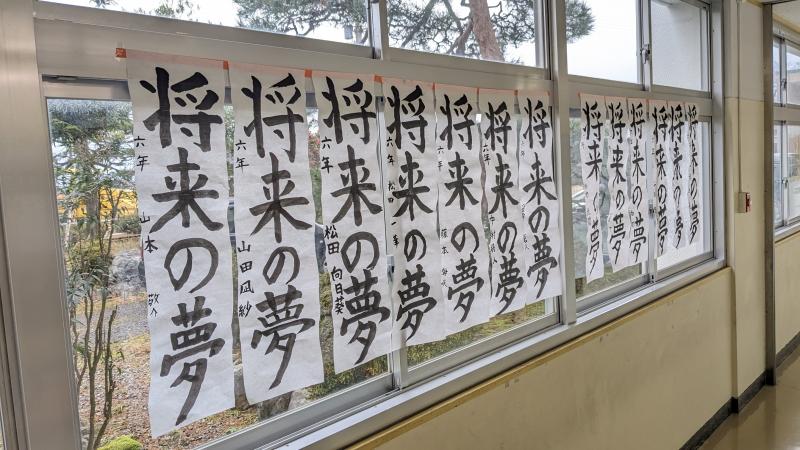 将来の夢
六年 山本
将来の夢
六年 山田凪紗
将来の夢
六年 松田向日葵
将来の夢
六年 松田
将来の夢
将来の夢
六年
将来の夢
将来の夢
将来の夢
将来の夢
将来の夢
将来の夢
将来の夢